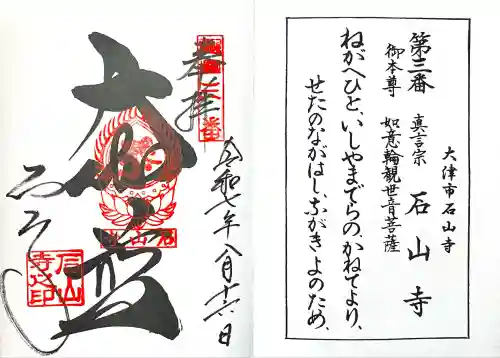 大津市石山寺
第三番 真言宗 石山寺
御本尊 如意輪観世音菩薩
ねがへひと、いしやまでらの、かねてより、
せたのながはし、ながきよのため、
令和七年八月十六日
奉拝
大伽藍
石山
寺之印